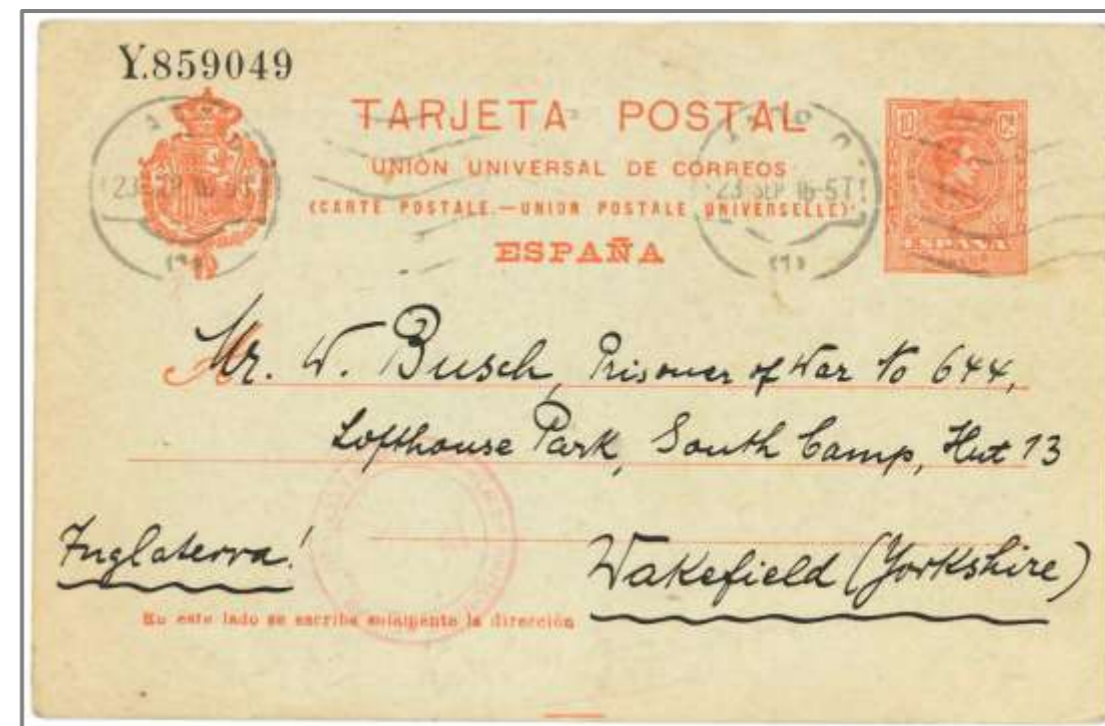 Y.859049
TARJETA POSTAL
UNIÓN UNIVERSAL DE CORREOS
(CARTE POSTALE.—UNION POSTALE UNIVERSELLE)
ESPAÑA
10 Cs.
ESPAÑA
23 SEP 16
23 SEP 16
A
Mr. W. Busch, Prisoner of War No 644,
Lofthouse Park, South Camp, Hut 13
Inglaterra!
Wakefield (Yorkshire)
En este lado se escribe solamente la dirección